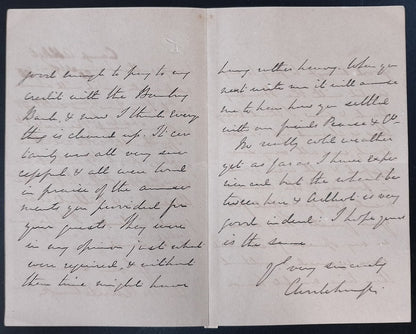 good enough to pay to my
credit with the Bombay
Bank, & now I think every
thing is cleared up. It cer
tainly was all very suc
cessful & all were loud
in praise of the amuse
ments you provided for
your guests. They were
in my opinion just what
were required, & without
them time might have
hung rather heavy. When you
next write me it will amuse
me to hear how you settled
with our friends & Co.
No really cold weather
yet as far as I have expe
rienced but the wheat be
tween here & is very
good indeed. I hope yours
is the same
Yrs very sincerely